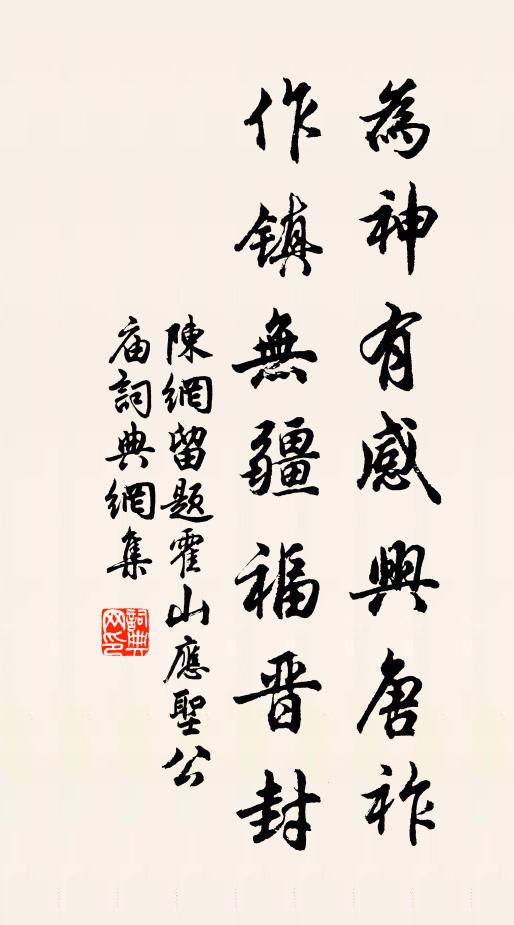 為神有感興唐祚
作鎮無疆福晋封
陳網留題霍山應聖公
庙詞典網集
詞典網印